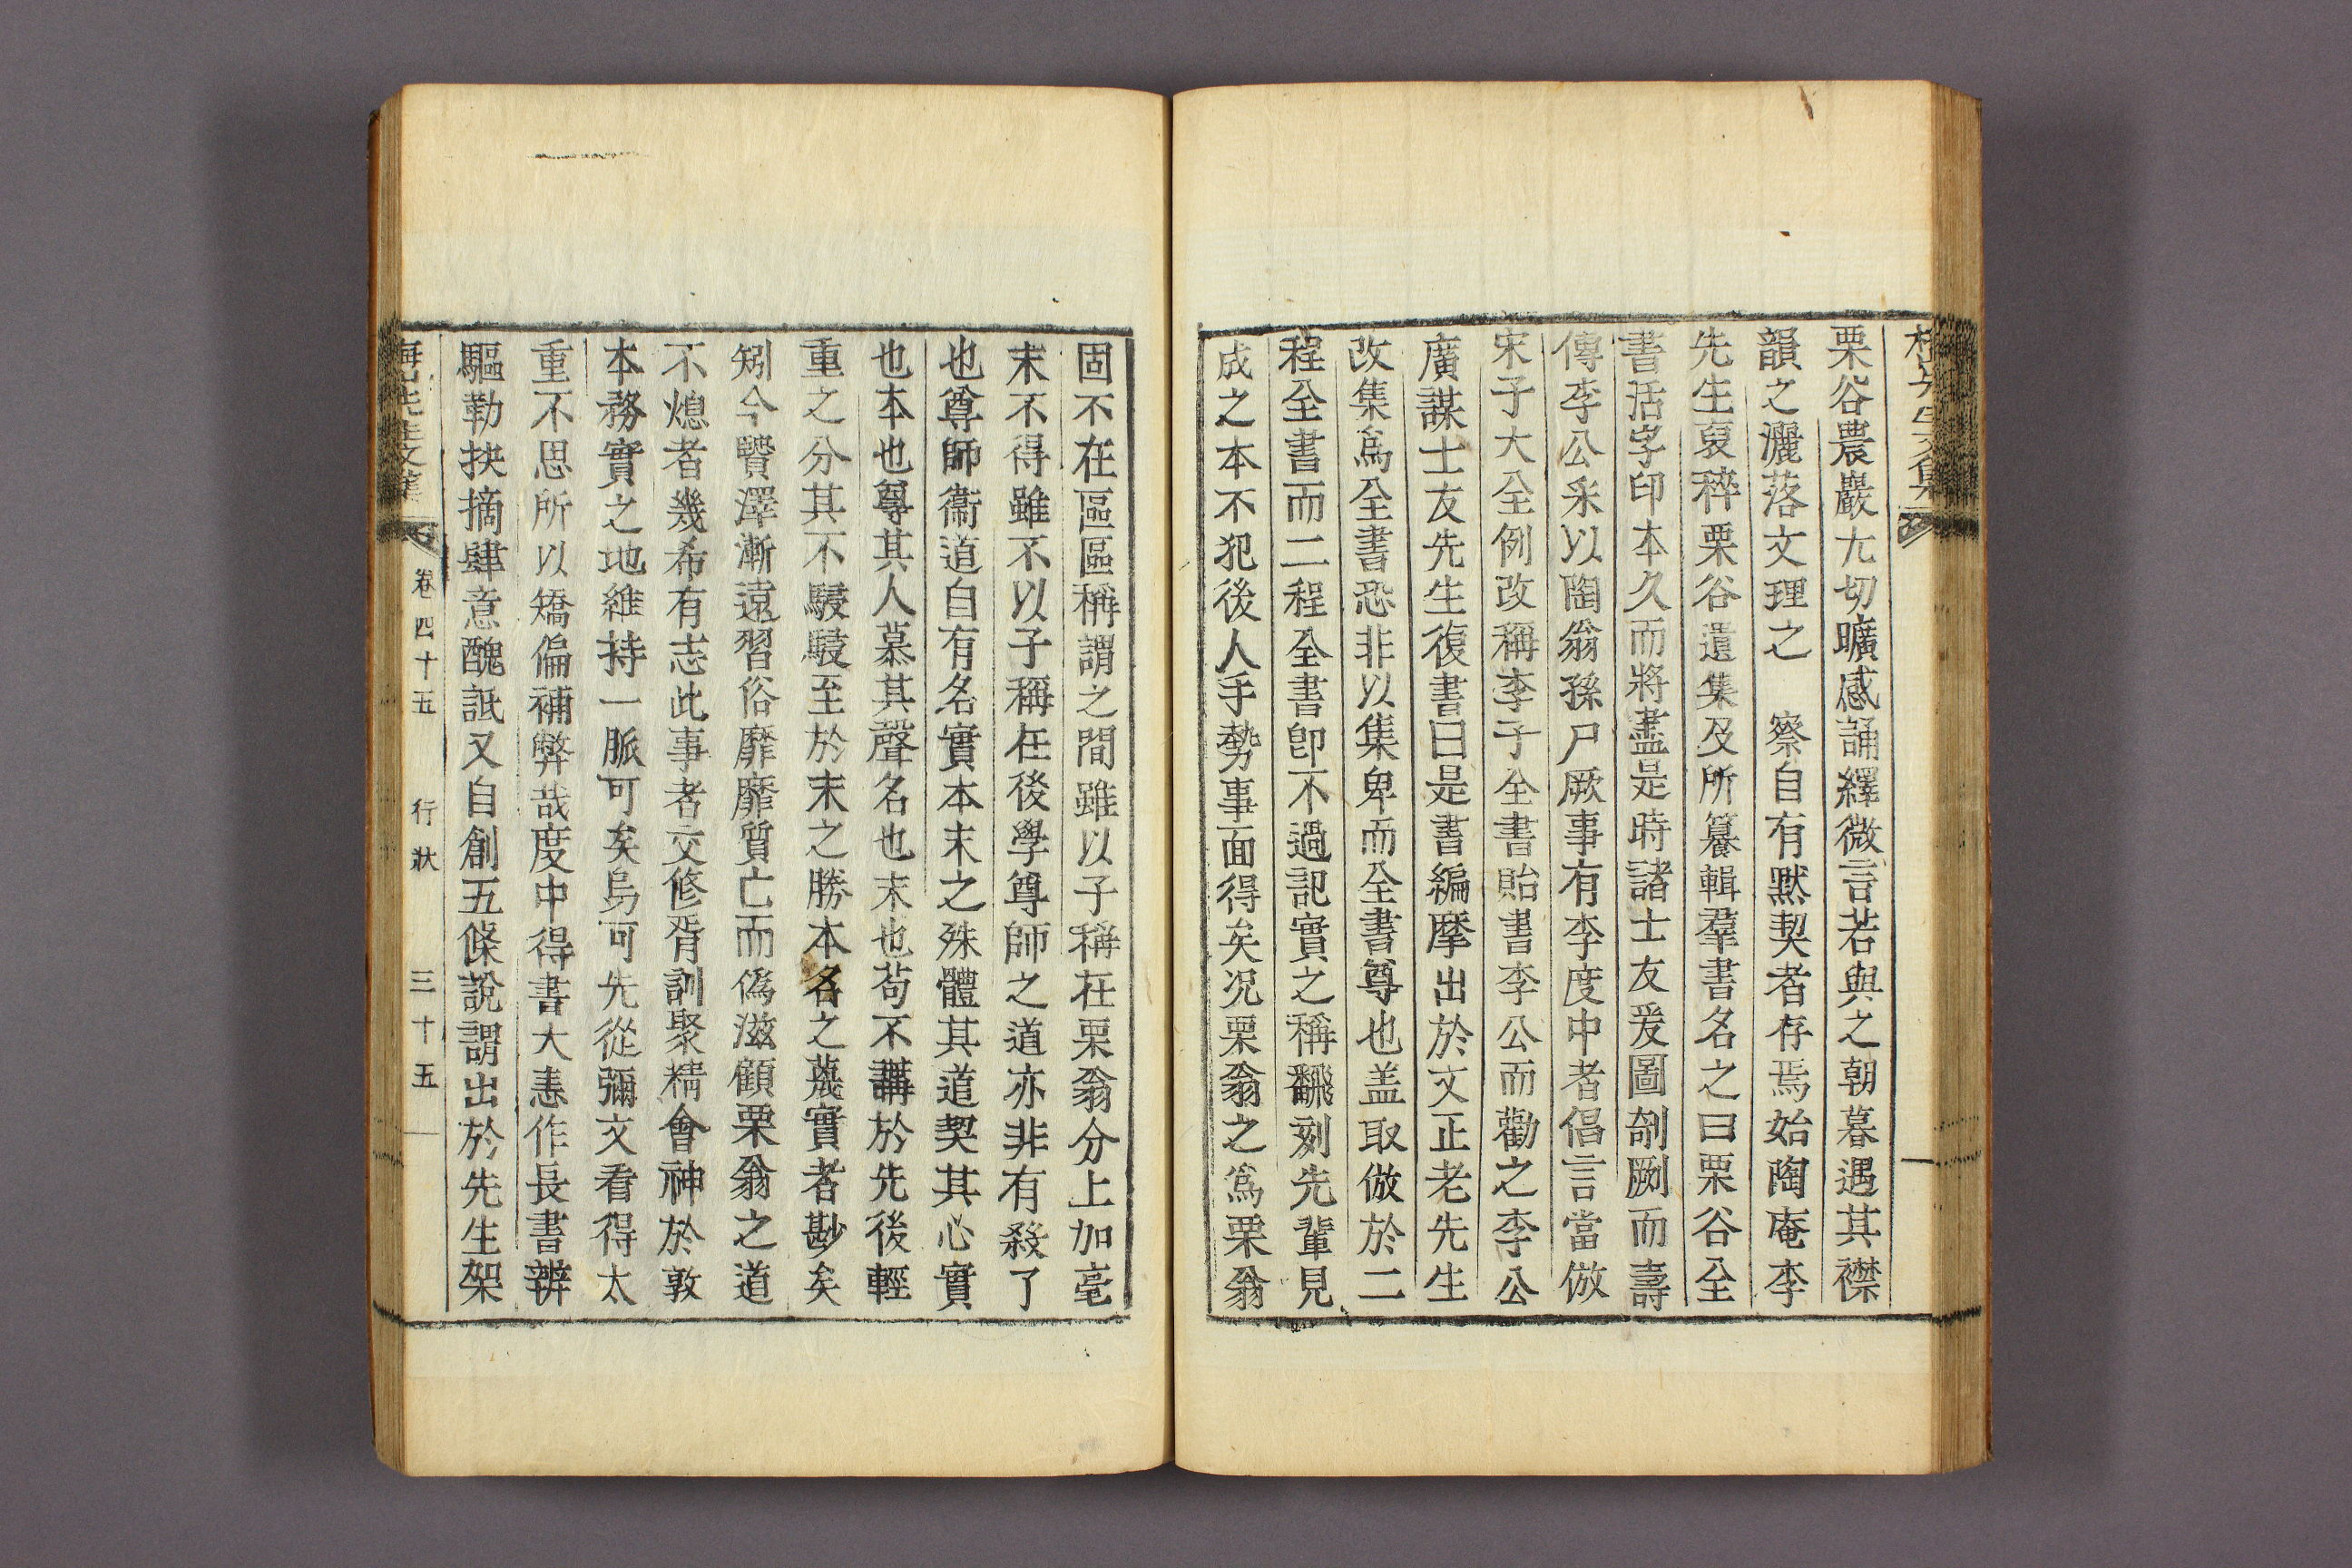 栗谷農巖尢切曠感誦繹微言若與之朝暮遇其襟
韻之灑落文理之 察自有默契者存焉始陶庵李
先生裒稡栗谷遺集及所纂輯羣書名之曰栗谷全
書活字印本久而將盡是時諸士友爰圖剞劂而壽
傳李公采以陶翁孫尸厥事有李度中者倡言當倣
宋子大全例改稱李子全書貽書李公而勸之李公
廣謀士友先生復書曰是書編摩出於文正老先生
改集爲全書恐非以集卑而全書尊也盖取倣於二
程全書而二程全書卽不過記實之稱翻刻先輩見
成之本不犯後人手勢事面得矣况栗翁之爲栗翁
固不在區區稱謂之間雖以子稱在栗翁分上加毫
末不得雖不以子稱在後學尊師之道亦非有殺了
也尊師衞道自有名實本末之殊體其道契其心實
也本也尊其人慕其聲名也末也苟不講於先後輕
重之分其不駸駸至於末之勝本名之蔑實者尠矣
矧今賢澤漸遠習俗靡靡質亡而僞滋顧栗翁之道
不熄者幾希有志此事者交修胥訓聚精會神於敦
本務實之地維持一脈可矣烏可先從彌文看得太
重不思所以矯偏補弊哉度中得書大恚作長書辨
驅勒抉摘肆意醜詆又自創五條說謂出於先生架
先生文集 卷四十五 行狀 三十五